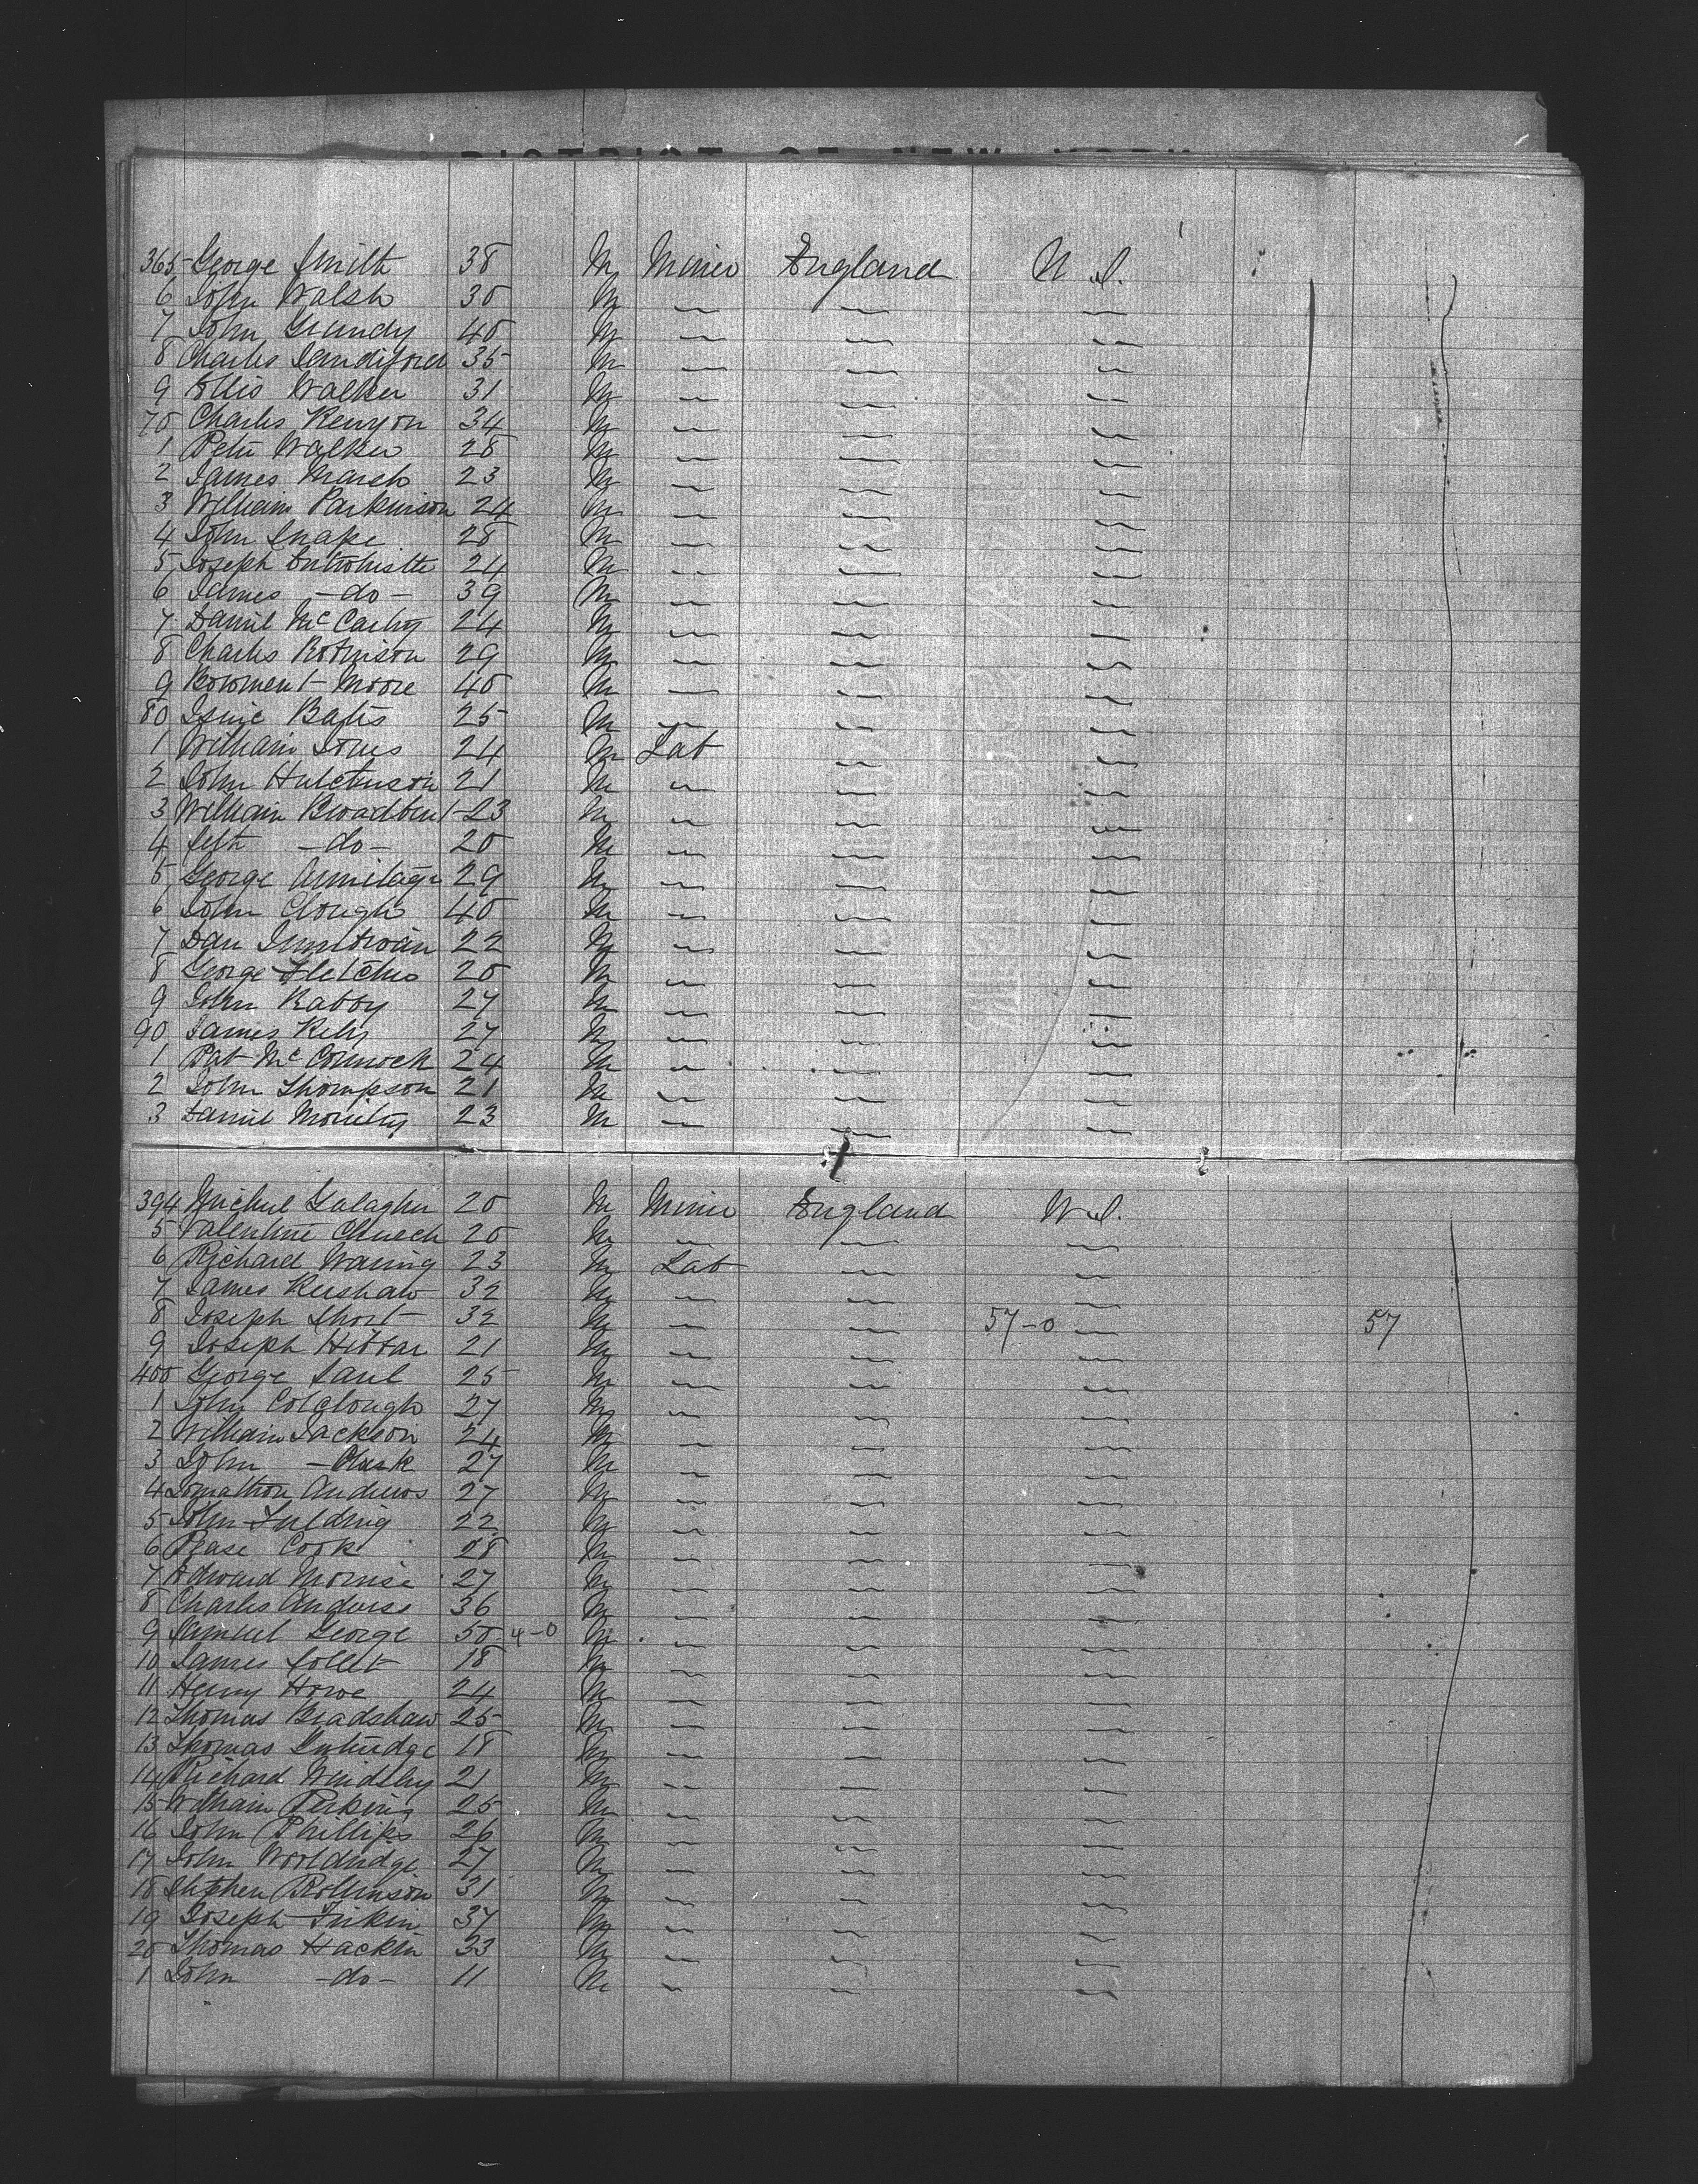 DISTRICT OF NEW YORK
365 George Smith 38 M Miner England U S.
6 John Walsh 30 M
7 John Grundy 40 M
8 Charles Sandiford 35 M
9 Ellis Walker 31 M
70 Charles Kenyon 34 M
1 Peter Walker 28 M
2 James Marsh 23 M
3 William Parkinson 24 M
4 John Snape 28 M
5 Joseph Entwhistle 24 M
6 James -do- 39 M
7 Daniel McCarthy 24 M
8 Charles Robinson 29 M
9 Moore 40 M
80 Bates 25 M
1 William Jones 24 M Lab
2 John Hutchinson 21 M
3 William Broadbent 23 M
4 Seth -do- 20 M
5 George Armitage 29 M
6 John Clough 40 M
7 Dan 22 M
8 George Fletcher 20 M
9 John Rabby 27 M
90 James Kelly 27 M
1 Pat McCormock 24 M
2 John Thompson 21 M
3 Daniel Moriety 23 M
394 Michael Galagher 20 M Miner England U S.
5 Valentine Church 20 M
6 Richard Waring 23 M Lab
7 James Kershaw 32 M
8 Joseph Short 32 M 57-0 57
9 Joseph 21 M
400 George Saul 25 M
1 John Colclough 27 M
2 William Jackson 24 M
3 John - Clark 27 M
4 Jonathon Andrews 27 M
5 John Fielding 22 M
6 Pease Cook 28 M
7 Edward 27 M
8 Charles 36 M
9 Samuel George 50 4-0 M
10 James 18 M
11 Henry Howe 24 M
12 Thomas Bradshaw 25 M
13 Thomas 18 M
14 Richard 21 M
15 William Perking 25 M
16 John Phillips 26 M
17 John Wooldridge 27 M
18 Stephen Rollinson 31 M
19 Joseph 37 M
20 Thomas 33 M
1 John -do- 11 M